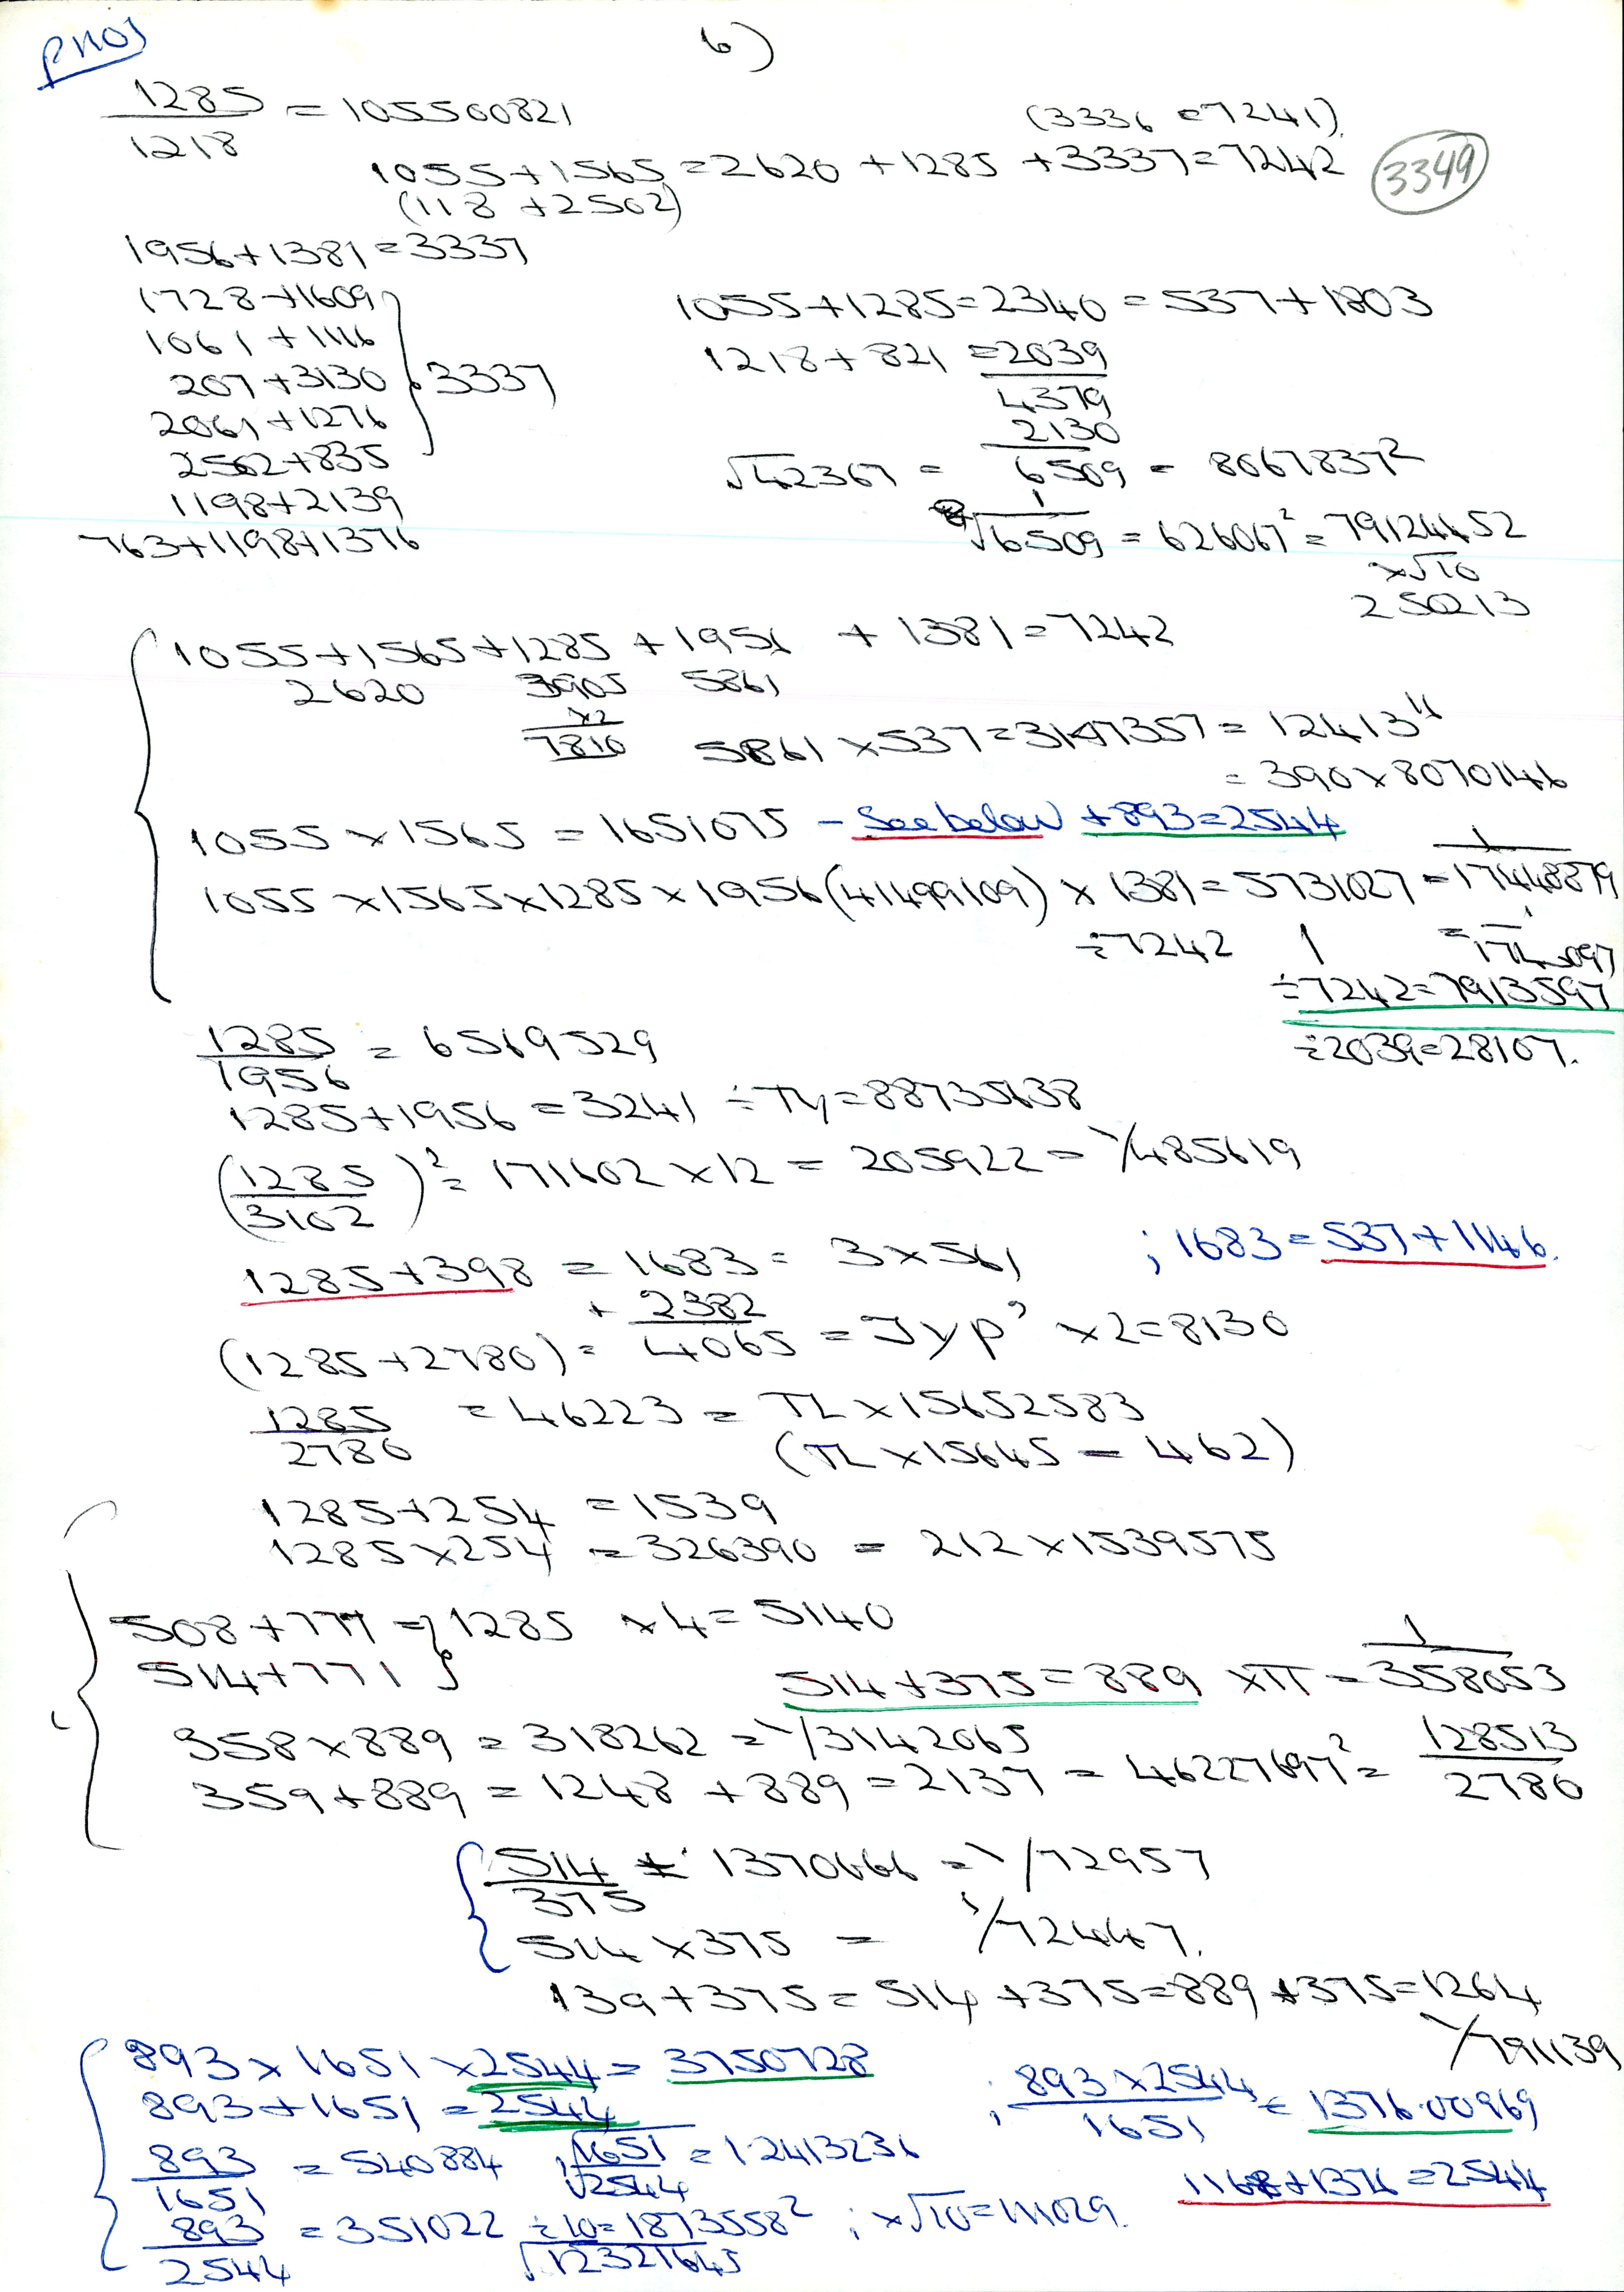 PHOS
6)
1285/1218 = 105500821
(3336 = 7241).
1055+1565 = 2620 + 1285 + 3337 = 7242
3349
(118 + 2502)
1956+1381 = 3337
1728+1609
1061 + 1116
207+3130 } 3337
2061+1276
2502+835
1198+2139
763+1198+1376
1055+1285 = 2340 = 537+1803
1218+821 = 2039
4379
2130
√42367 = 6509 = 8067837²
1/√6509 = 626067² = 79124452
×√10
250213
1055+1565+1285 + 1956 + 1381 = 7242
2620 3905 5861
×2
7810
5861 × 537 = 3147357 = 12413⁴
= 390×8070146
1055 × 1565 = 1651075 - See below +893 = 2544
1055 × 1565 × 1285 × 1956 (41499109) × 1381 = 5731027 = 1/17448879
÷7242 1 = 1/1743097
÷7242 = 7913597
÷2039 = 28107.
1285/1956 = 6569529
1285+1956 = 3241 ÷ Ty = 88735638
(1285/3102)² = 171602 × 12 = 205922 = 1/485619
1285+398 = 1683 = 3×561 ; 1683 = 537+1146.
+ 2382
(1285+2780) = 4065 = Jyp² ×2 = 8130
1285/2780 = 46223 = TL × 15652583
(TL × 15645 = 462)
1285+254 = 1539
1285×254 = 326390 = 212 × 1539575
508+777 = } 1285 ×4 = 5140
514+771 }
514+375 = 889 ×π = 1/358053
358×889 = 318262 = 1/3142065
359+889 = 1248 + 889 = 2137 = 46227697² = 128513/2780
514/375 = 1370666 = 1/72957
514 × 375 = 1/72447.
139+375 = 514 + 375 = 889 + 375 = 1264
1/791139
893 × 1651 × 2544 = 3750728
893+1651 = 2544
; 893×2544/1651 = 1376.00969
893/1651 = 540884 ; √1651/√2544 = 1.2413236
1168+1376 = 2544
893/2544 = 351022 ÷10 = 1873558² ; ×√10 = 111029.
√12321645